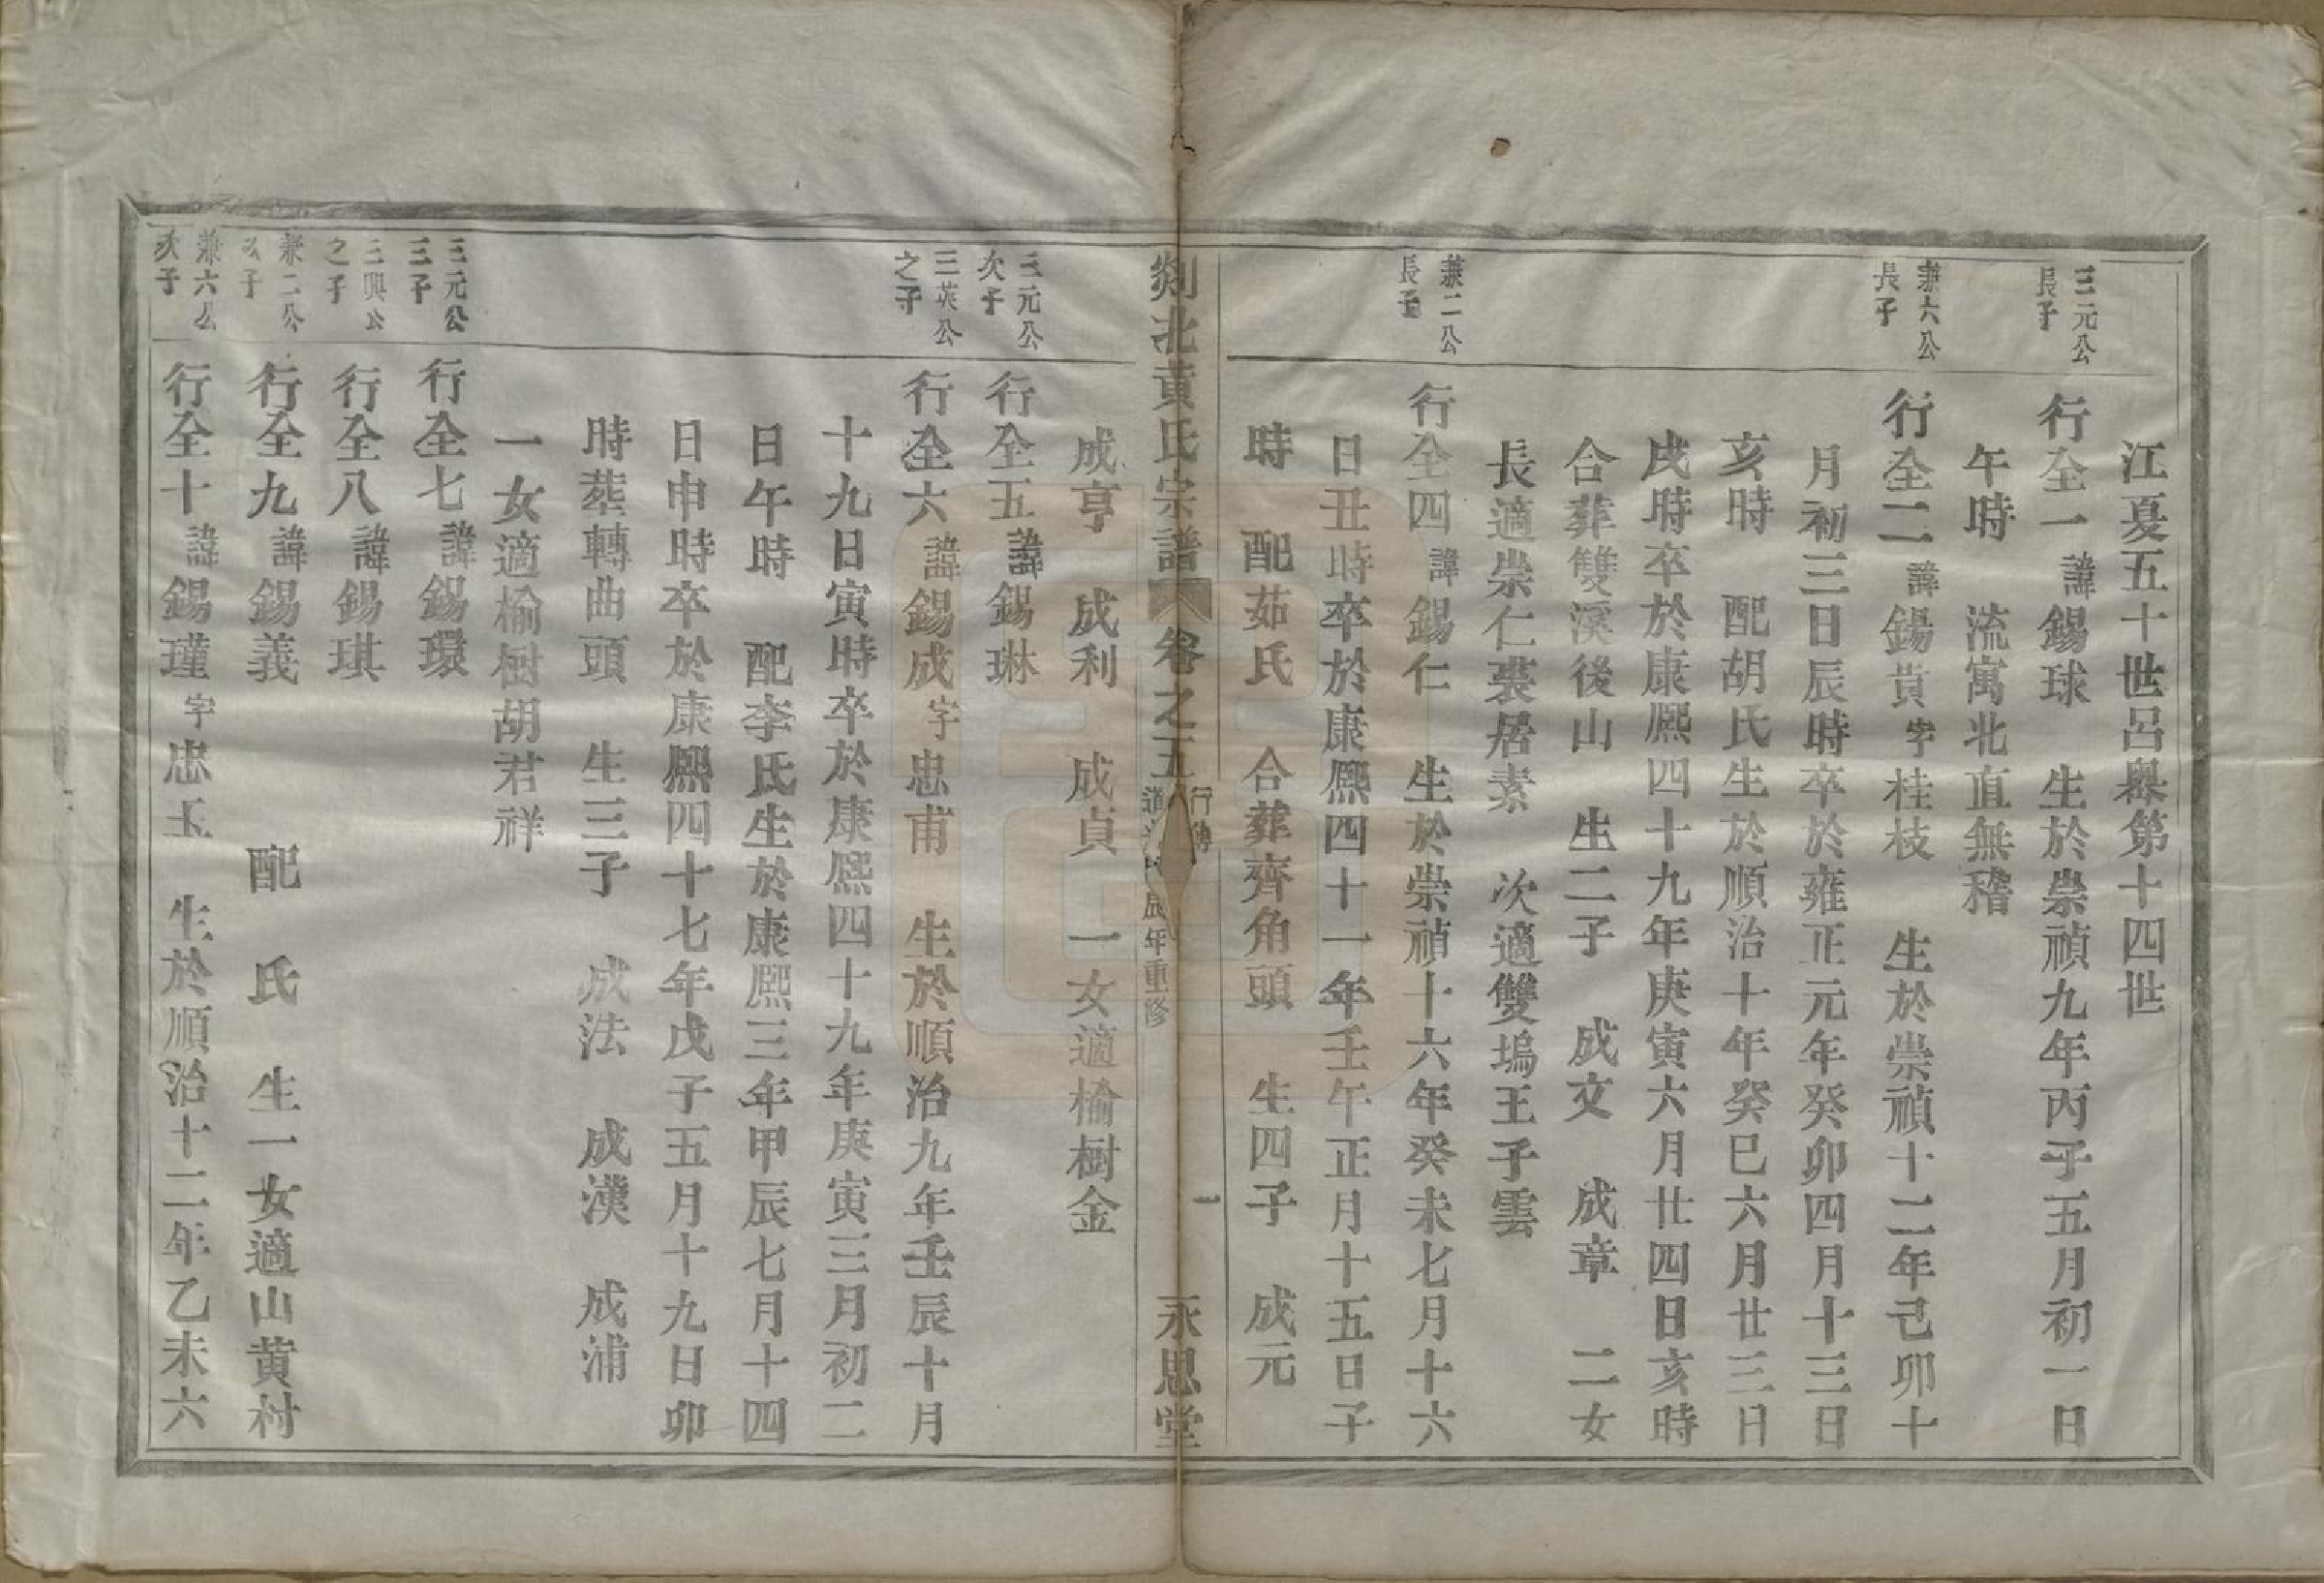 江夏五十世呂奧第十四世
三元公
長子
行全一諱錫球 生於崇禎九年丙子五月初一日
午時 流寓北直無稽
兼六公
長子
行全二諱錫賁字桂枝 生於崇禎十二年己卯十
月初三日辰時卒於雍正元年癸卯四月十三日
亥時 配胡氏生於順治十年癸巳六月廿三日
戌時卒於康熙四十九年庚寅六月廿四日亥時
合葬雙溪後山 生二子 成文 成章 二女
長適崇仁裘居素 次適雙塢王子雲
兼二公
長子
行全四諱錫仁 生於崇禎十六年癸未七月十六
日丑時卒於康熙四十一年壬午正月十五日子
時 配茹氏 合葬齊角頭 生四子 成元
剡北黃氏宗譜 卷之五 行傳 年重修 一 永思堂
成亨 成利 成貞 一女適榆樹金
三元公
次子
行全五諱錫琳
三英公
之子
行全六諱錫成字忠甫 生於順治九年壬辰十月
十九日寅時卒於康熙四十九年庚寅三月初二
日午時 配李氏生於康熙三年甲辰七月十四
日申時卒於康熙四十七年戊子五月十九日卯
時葬轉曲頭 生三子 成法 成漢 成浦
一女適榆樹胡君祥
三元公
三子
行全七諱錫環
三興公
之子
行全八諱錫琪
兼二公
次子
行全九諱錫義 配 氏 生一女適山黃村
兼六公
次子
行全十諱錫瑾字忠玉 生於順治十二年乙未六